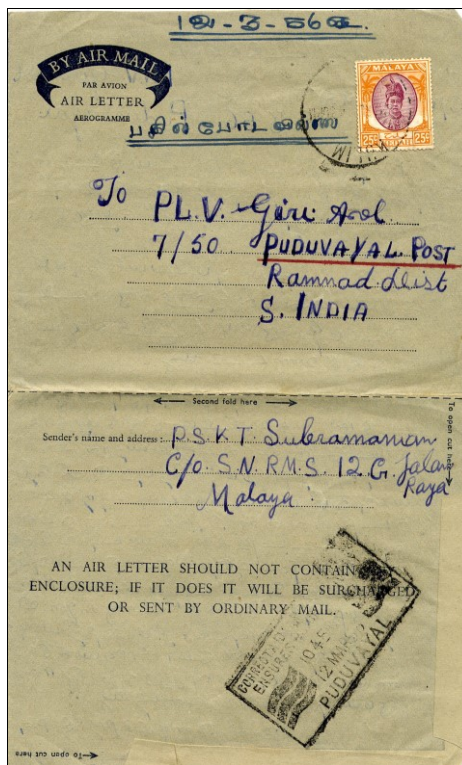 BY AIR MAIL
PAR AVION
AIR LETTER
AEROGRAMME
MALAYA
25c 25c
பதில் போடவில்லை
To PL.V. Giri Arel
7/50 PUDUVAYAL. POST
Ramnad Dist
S. INDIA
Second fold here
To open cut here
Sender's name and address: P.S.K.T Subramanian
C/o S.N.RM.S. 12 G. Jalan
Raya
Malaya
AN AIR LETTER SHOULD NOT CONTAIN
ENCLOSURE; IF IT DOES IT WILL BE SURCHARGED
OR SENT BY ORDINARY MAIL.
CORRECT
ENSURES
1045
12 MAR
PUDUVAYAL
To open cut here